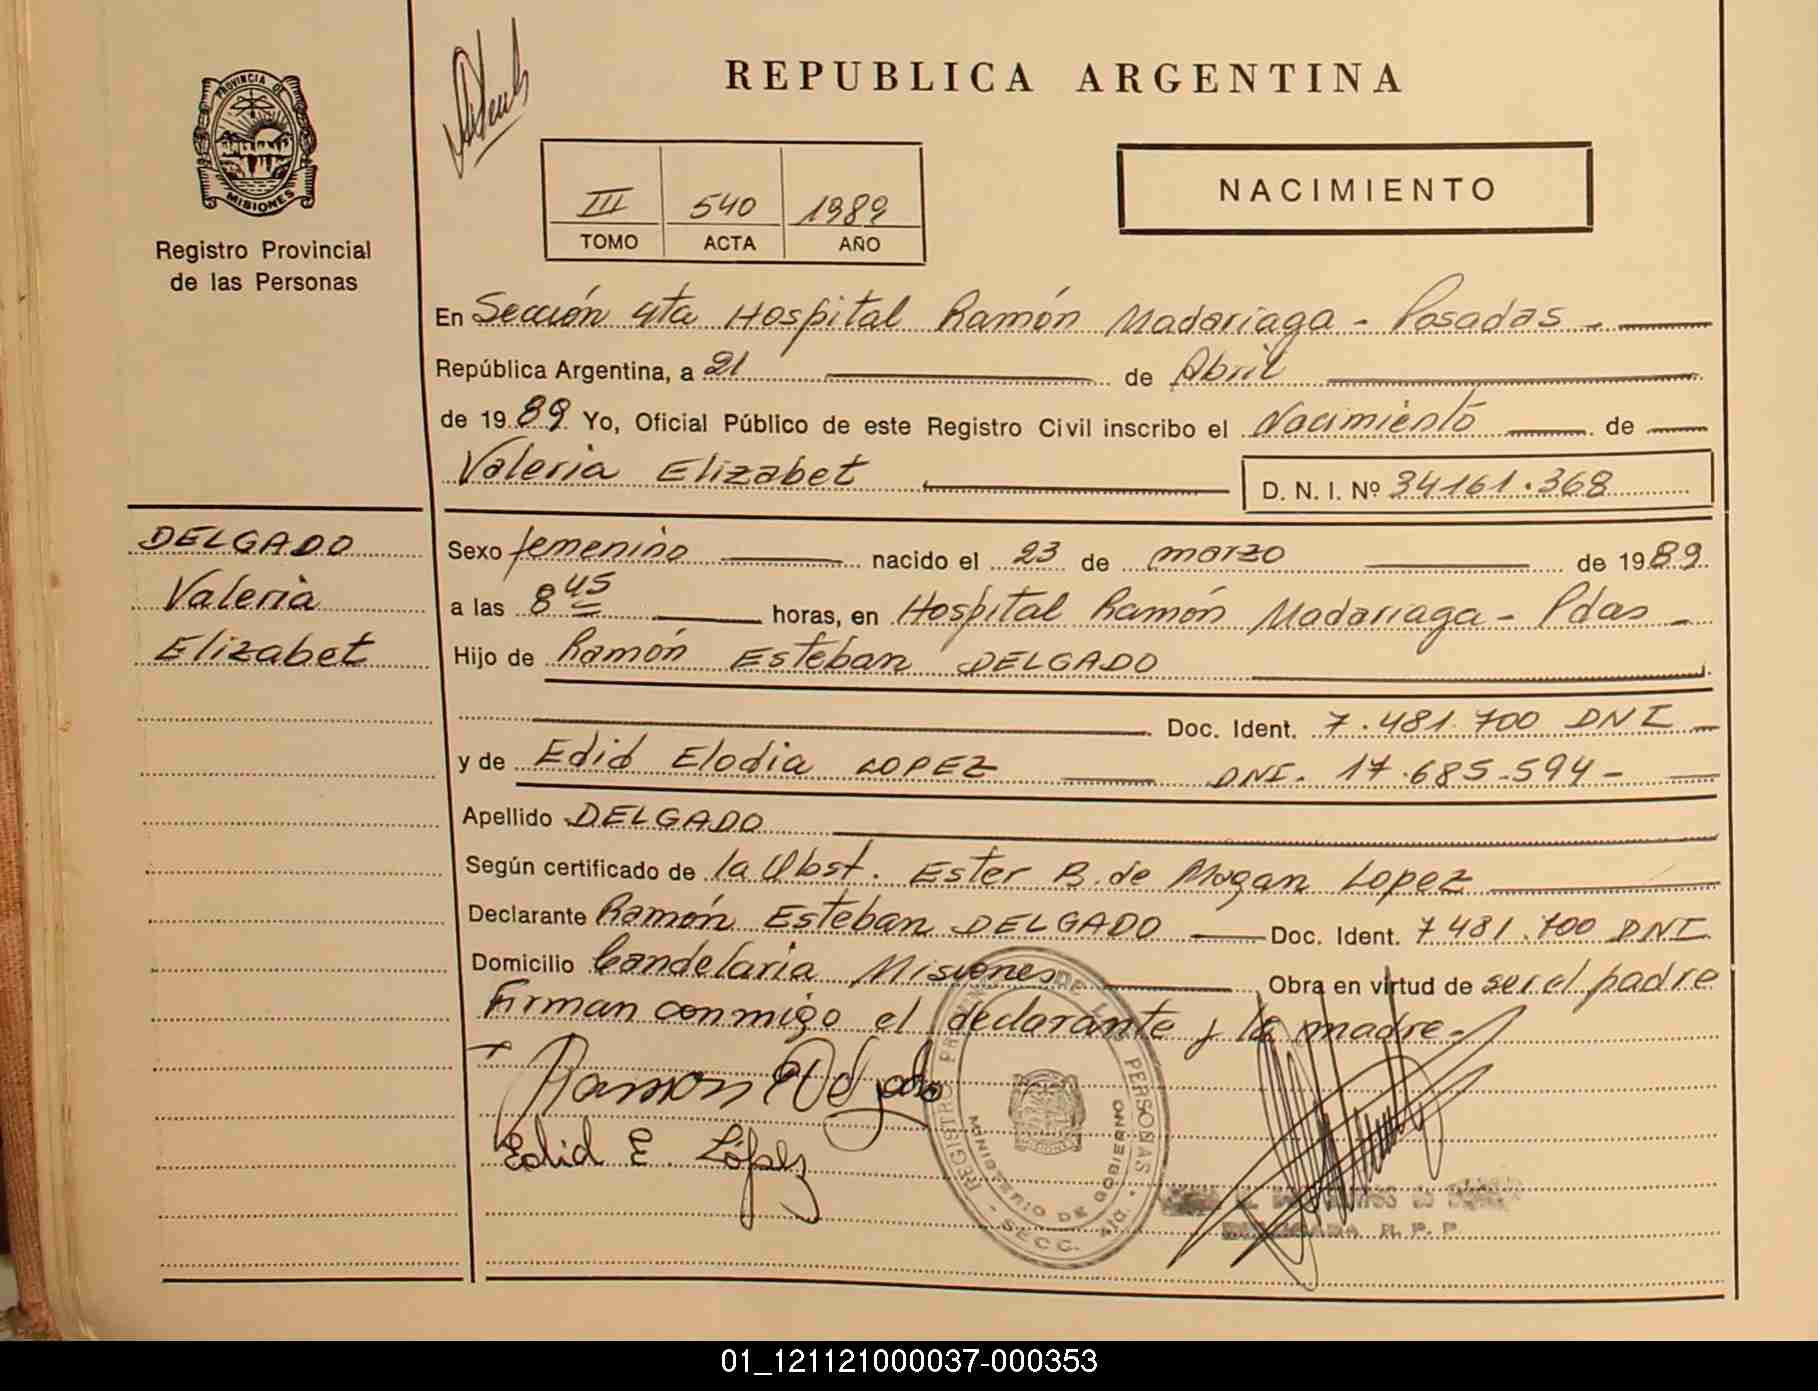 REPUBLICA ARGENTINA
PROVINCIA DE
MISIONES
Registro Provincial
de las Personas
III 540 1989
TOMO ACTA AÑO
NACIMIENTO
En Sección 4ta Hospital Ramón Madariaga - Posadas -
República Argentina, a 21 de Abril
de 1989 Yo, Oficial Público de este Registro Civil inscribo el Nacimiento de
Valeria Elizabet D. N. I. Nº 34161.368
DELGADO
Valeria
Elizabet
Sexo femenino nacido el 23 de marzo de 1989.
a las 8 45 horas, en Hospital Ramón Madariaga - Pdas -
Hijo de Ramón Esteban DELGADO
Doc. Ident. 7.481.700 DNI
y de Edid Elodia LOPEZ DNI. 17.685.594 -
Apellido DELGADO
Según certificado de la Obst. Ester B. de Mogan Lopez
Declarante Ramón Esteban DELGADO Doc. Ident. 7481.700 DNI
Domicilio Candelaria Misiones Obra en virtud de ser el padre
Firman conmigo el declarante y la madre -
Ramon E Delgado
Edid E. López
REGISTRO PROVINCIAL DE LAS PERSONAS
MINISTERIO DE GOBIERNO
- SECC. 4ta
R. P. P.
01_121121000037-000353